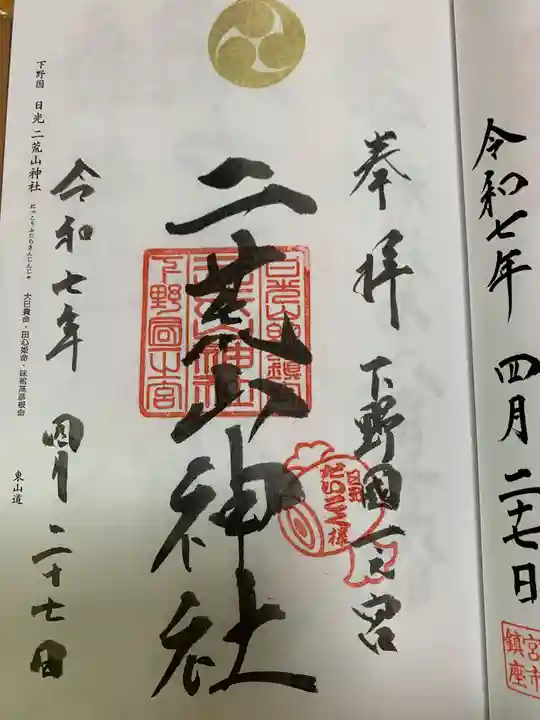 令和七年 四月二十七日
宮市
鎮座
奉拝 下野國一之宮
日光
だいこく様
二荒山神社
日光山總鎮守
二荒山神社
下野國一之宮
令和七年 四月二十七日
下野国 日光二荒山神社 にっこうふたらさんじんじゃ 大己貴命・田心姫命・味耜高彦根命 東山道